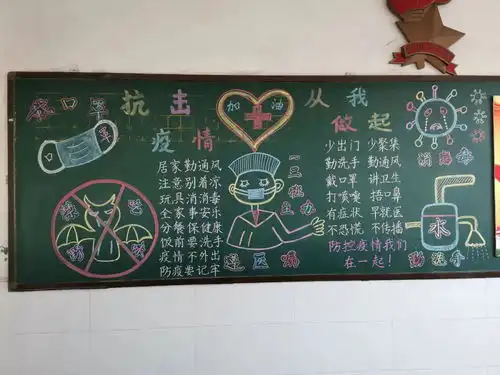 戴口罩
抗击
疫情
加油
从我
做起
消毒
居家勤通风
注意别着凉
玩具消消毒
全家事安乐
分餐保健康
饭前要洗手
疫情不外出
防疫要记牢
一三班
主办
少出门 少聚集
勤洗手 勤通风
戴口罩 讲卫生
打喷嚏 捂口鼻
有症状 早就医
不恐慌 不传播
防控疫情我们
在一起！
水
勤洗手